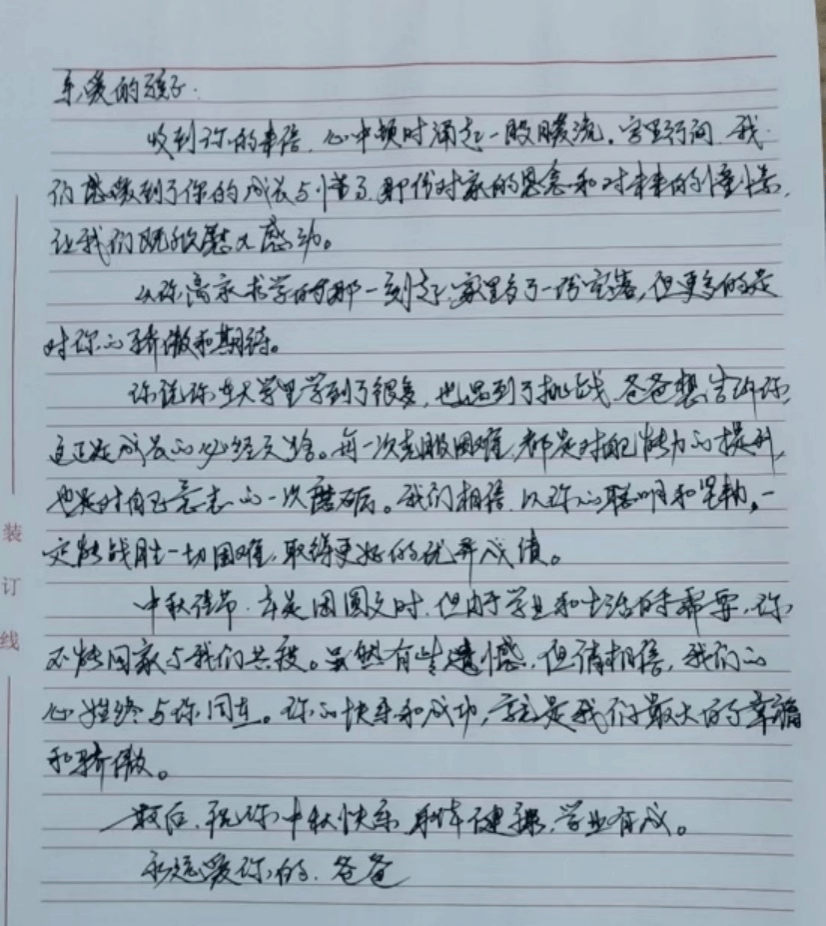 亲爱的孩子:
收到你的来信,心中顿时涌起一股暖流。字里行间,我
们感受到了你的成长与懂事,那份对家的思念和对未来的憧憬,
让我们既欣慰又感动。
从你离家求学的那一刻起,家里多了一份空落,但更多的是
对你的骄傲和期待。
你说你在大学里学到了很多,也遇到了挑战,爸爸想告诉你,
这正是成长的必经之路。每一次克服困难,都是对自己能力的提升,
也是对自己意志的一次磨砺。我们相信,以你的聪明和坚韧,一
定能战胜一切困难,取得更好的优异成绩。
中秋佳节,本是团圆之时,但由于学业和生活的需要,你
不能回家与我们共度。虽然有些遗憾,但请相信,我们的
心始终与你同在。你的快乐和成功,就是我们最大的幸福
和骄傲。
最后,祝你中秋快乐,身体健康,学业有成。
永远爱你的:爸爸
装
订
线